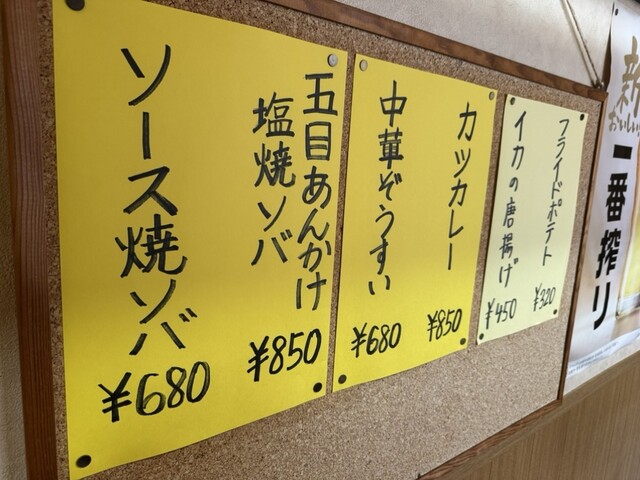 五目あんかけ
塩焼ソバ
¥850
ソース焼ソバ
¥680
カツカレー
¥850
中華ぞうすい
¥680
フライドポテト
¥320
イカの唐揚げ
¥450
新
おいしい
一番搾り